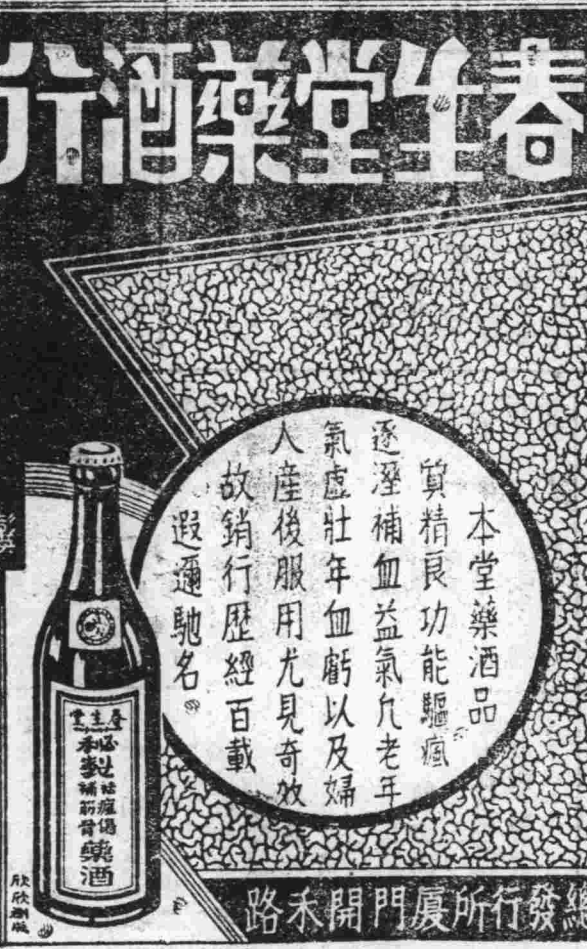 春生堂藥酒行
本堂藥酒品
質精良功能驅瘋
逐溼補血益氣凢老年
氣虛壯年血虧以及婦
人產後服用尤見奇效
故銷行歷經百載
遐邇馳名
春生堂
本
製
祛瘋傷
補筋骨
藥酒
總發行所廈門開禾路